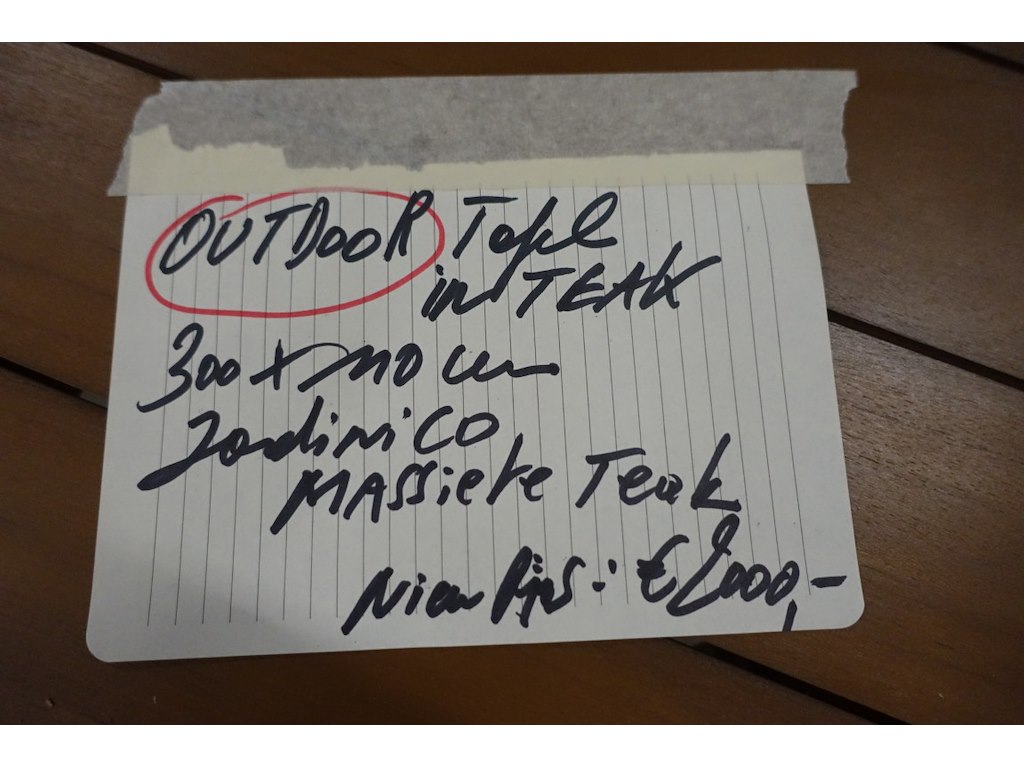 OUTDOOR Tafel
in TEAK
300 x 110 cm
JardiniCO
MASSieve Teak
Nieuw Prijs: € 8000,-